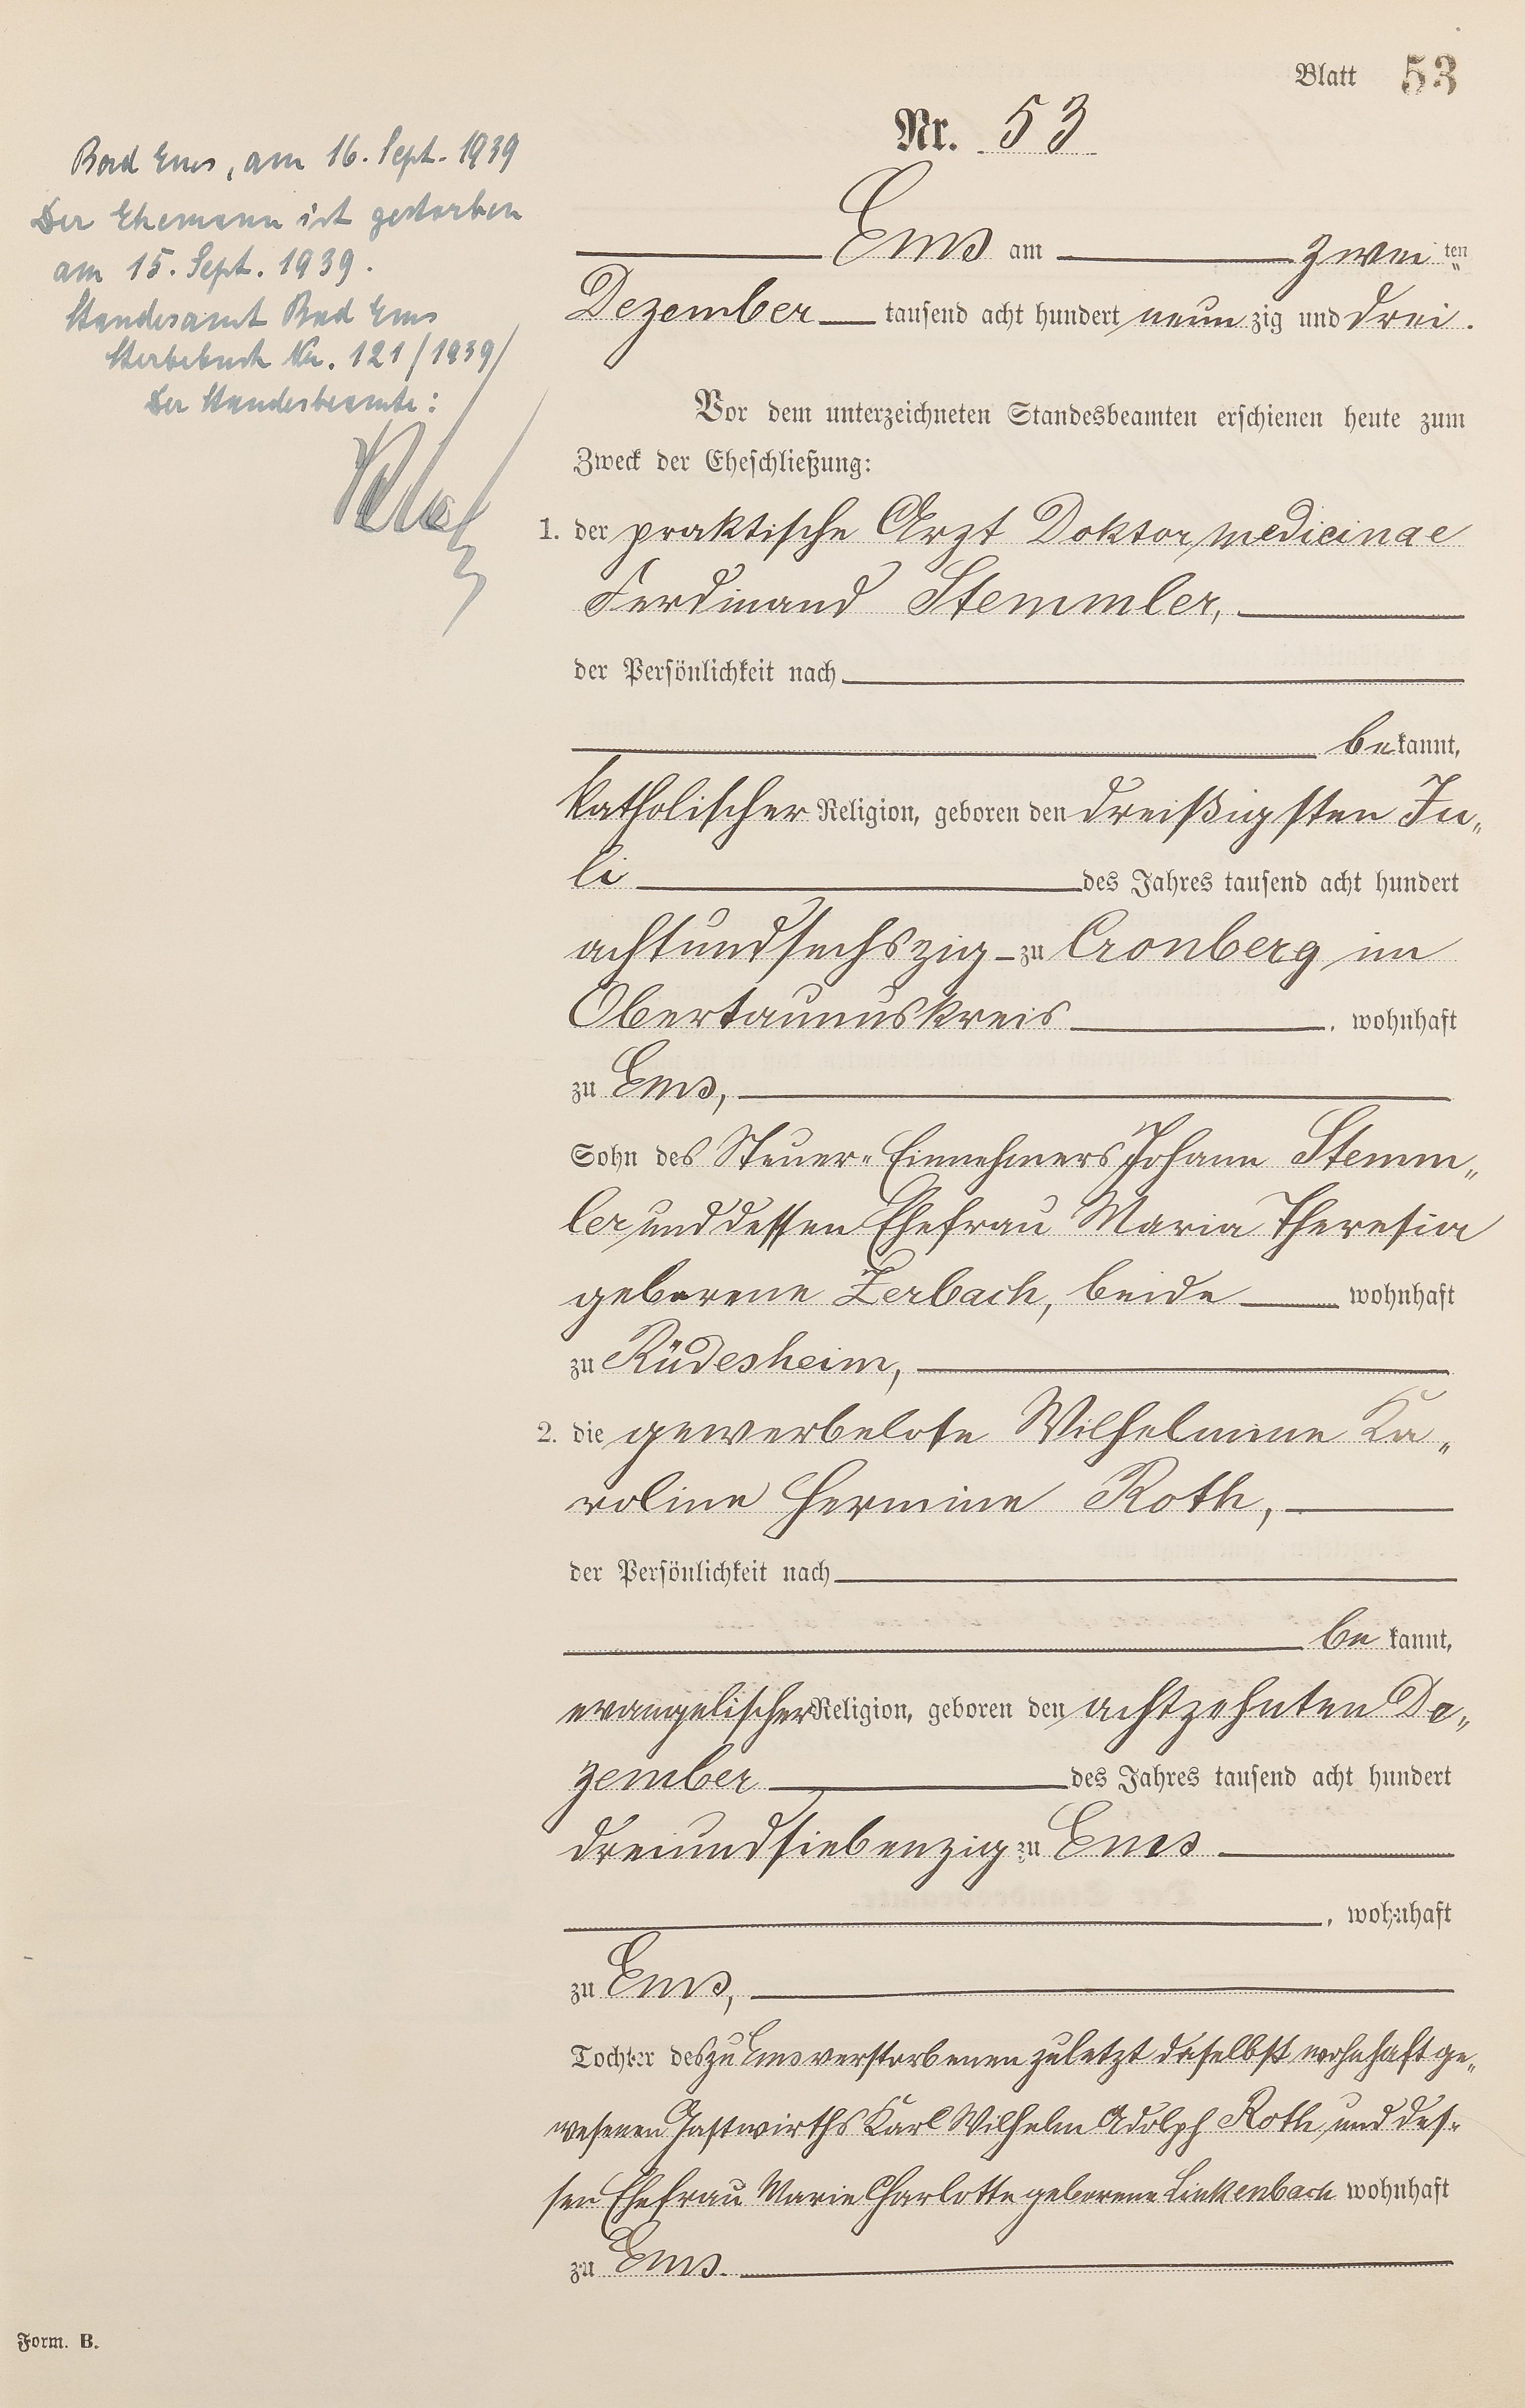 Blatt 53
Nr. 53
Bad Ems, am 16. Sept. 1939
Der Ehemann ist gestorben
am 15. Sept. 1939.
Standesamt Bad Ems
Sterbebuch Nr. 121/1939
Der Standesbeamte:
Ems am zweiten
Dezember tausend acht hundert neunzig und drei.
Vor dem unterzeichneten Standesbeamten erschienen heute zum
Zweck der Eheschließung:
1. der praktische Arzt Doktor medicinae
Ferdinand Stemmler,
der Persönlichkeit nach
bekannt,
katholischer Religion, geboren den dreißigsten Ju„
li des Jahres tausend acht hundert
achtundsechszig zu Cronberg im
Obertaunuskreis, wohnhaft
zu Ems,
Sohn des Steuer-Einnehmers Johann Stemm„
ler und dessen Ehefrau Maria Theresia
geborene Zerbach, beide wohnhaft
zu Rüdesheim,
2. die gewerbelose Wilhelmine Ka„
roline Hermine Roth,
der Persönlichkeit nach
bekannt,
evangelischer Religion, geboren den achtzehnten De„
zember des Jahres tausend acht hundert
dreiundsiebenzig zu Ems
, wohnhaft
zu Ems,
Tochter des zu Ems verstorbenen zuletzt daselbst wohnhaft ge„
wesenen Gastwirths Karl Wilhelm Adolph Roth und des-
sen Ehefrau Marie Charlotte geborene Linkenbach wohnhaft
zu Ems.
Form. B.